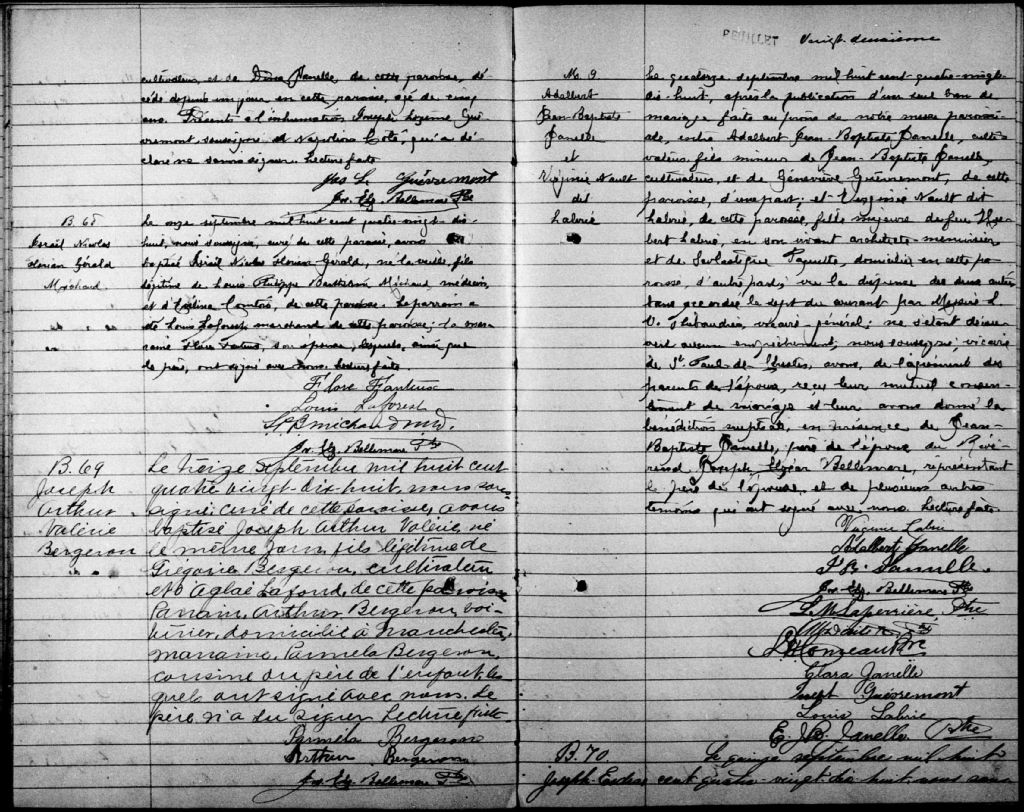 cultivateur, et de Dina Janelle, de cette paroisse, dé-
cédé depuis un jour en cette paroisse, agé de cinq
ans. Présents à l'inhumation Joseph Lozeme Gué-
vremont soussigné et Napoléon Coté, qui a dé-
claré ne savoir signer. Lecture faite
Jos L. Guèvremont
Jos. Elz. Bellemare Ptre
B. 68
Nicolas
Florian Gérald
Michaud
Le onze septembre mil huit cent quatre-vingt-dix-
huit, nous soussigné, curé de cette paroisse, avons
baptisé Nicolas Florian-Gérald, né la veille, fils
légitime de Louis Philippe Barthelemi Michaud, médecin,
et d' Comtois, de cette paroisse. Le parrain a
été Louis Laforest, marchand de cette paroisse; la mar-
raine Flore Fauteux, son épouse, lesquels, ainsi que
le père, ont signé avec nous. Lecture faite.
Flore Fauteux
Louis Laforest
L P B Michaud m.d.
Jos. Elz. Bellemare Ptre
B. 69
Joseph
Arthur
Valérie
Bergeron
Le treize Septembre mil huit cent
quatre vingt-dix huit, nous sous-
signé, Curé de cette paroisse, avons
baptisé Joseph Arthur Valérie, né
le même jour, fils légitime de
Grégoire Bergeron, cultivateur
et d'Aglaé Lafond, de cette paroisse
Parrain, Arthur Bergeron, voi-
turier, domicilié à Manchester,
marraine, Parméla Bergeron,
cousine du père de l'enfant, les
quels ont signé avec nous. Le
père n'a su signer Lecture faite
Parméla Bergeron
Arthur Bergeron
Jos. Elz. Bellemare Ptre
FEUILLET Vingt-deuxième
M. 9
Adalbert
Jean-Baptiste
Janelle
et
Virginie Nault
dit
Labrie
Le quatorze septembre mil huit cent quatre-vingt-
dix-huit, après la publication d'un seul ban de
mariage faite au prône de notre messe parois-
siale, entre Adalbert Jean-Baptiste Janelle, culti-
vateur, fils mineur de Jean-Baptiste Janelle,
cultivateur, et de Géneviève Guèvremont, de cette
paroisse, d'une part; et Virginie Nault dit
Labrie, de cette paroisse, fille majeure de feu
Labrie, en son vivant architecte-menuisier
et de Scholastique Paquette, domiciliée en cette pa-
roisse, d'autre part; vu la dispense des deux autres
bans accordée le sept du courant par Messire L.
V. Thibaudier, vicaire-général; ne s'étant décou-
vert aucun empêchement; nous soussigné, vicaire
de St. Paul-de-Chester, avons, de l'agrément des
parents de l'époux, reçu leur mutuel consen-
tement de mariage et leur avons donné la
bénédiction nuptiale, en présence de Jean-
Baptiste Janelle, père de l'époux, du Révé-
rend Joseph Elzéar Bellemare, représentant
le père de l'épouse, et de plusieurs autres
témoins qui ont signé avec nous. Lecture faite.
Virginie Labrie
Adalbert Janelle
J B. Janelle.
Jos. Elz. Bellemare Ptre
L. M. Laperrière, Ptre
Ptre
Clara Janelle
Joseph Guèvremont
Louis Labrie
E. J. B. Janelle Ptre
B. 70.
Joseph
Le quinze septembre mil huit
cent quatre-vingt dix-huit nous sous-